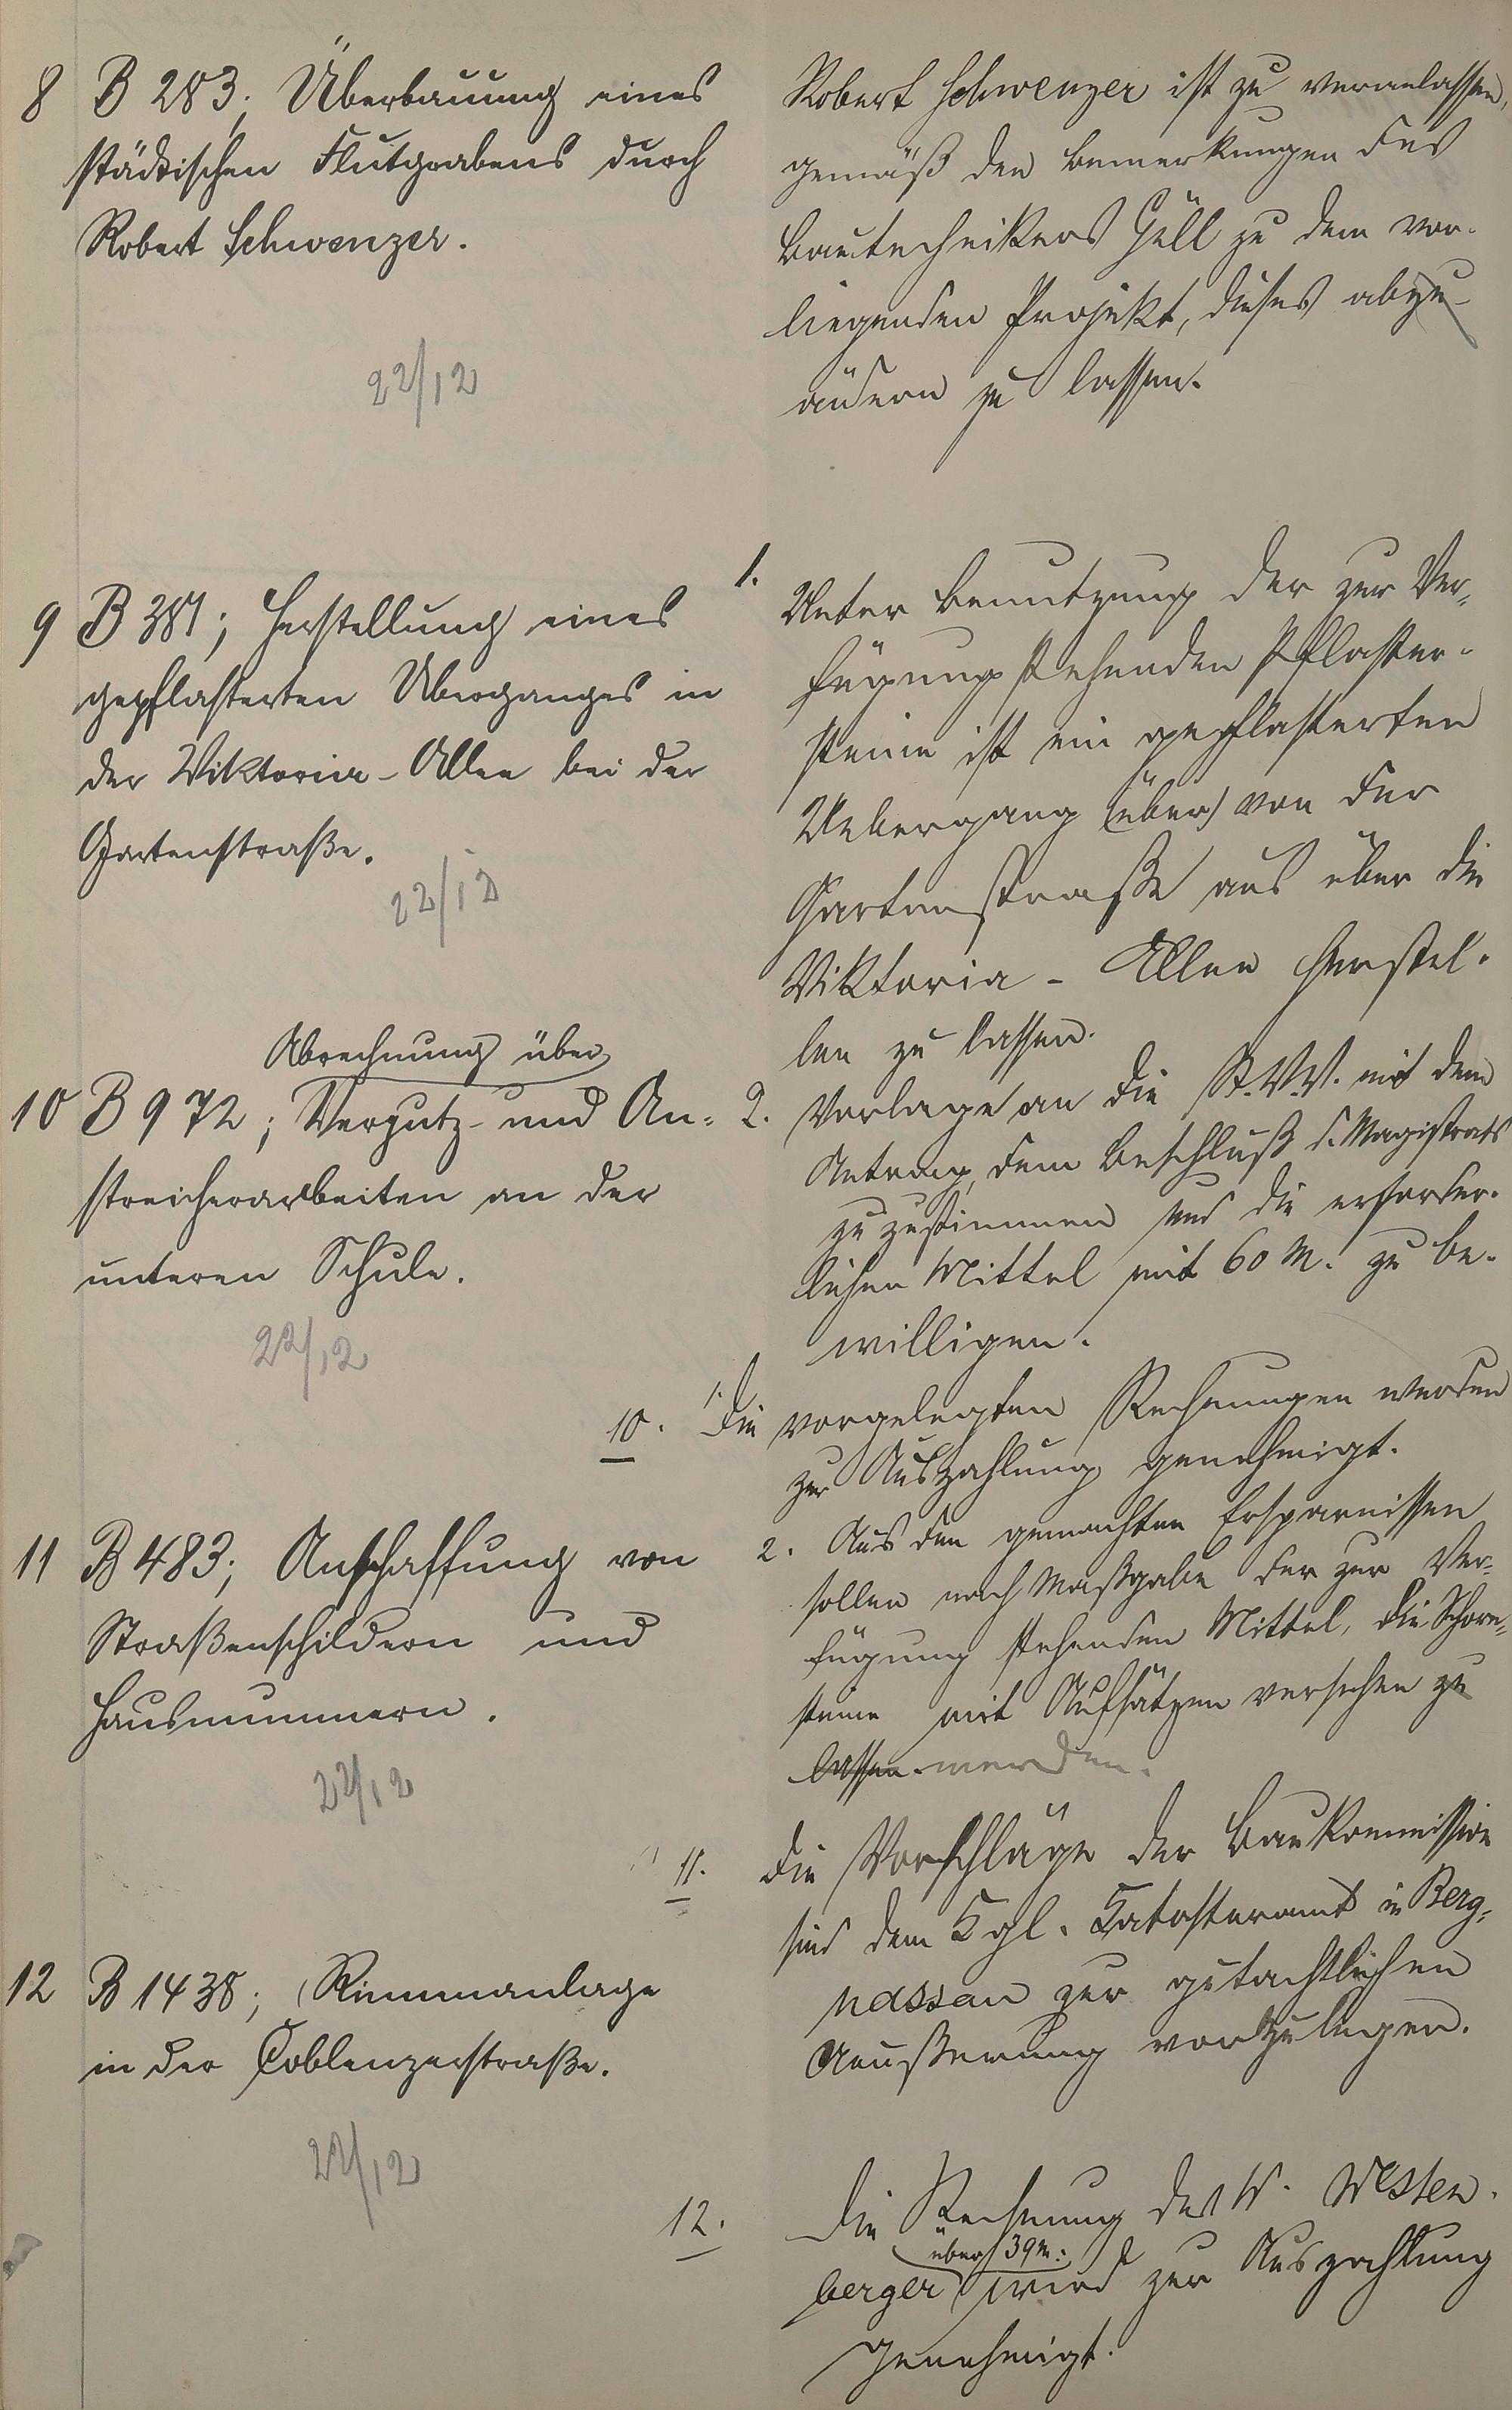 8 B 283; Überbauung eines
städtischen Flutgrabens durch
Robert Schwenzer.
22/12
Robert Schwenzer ist zu veranlassen,
gemäß den Bemerkungen des
Bautechnikers Göll zu dem vor-
liegenden Projekt, dieses abzu-
ändern zu lassen.
9 B 381; Herstellung eines
gepflasterten Überganges in
der Viktoria-Allee bei der
Gartenstraße.
22/12
1. Unter Benutzung der zur Ver-
fügung stehenden Pflaster-
steine ist ein gepflasterten
Uebergang (über) von der
Gartenstraße aus über die
Viktoria-Allee herstel-
len zu lassen.
2. Vorlage an die St.V.V. mit dem
Antrag, dem Beschluß d. Magistrats
zuzustimmen und die erforder-
lichen Mittel mit 60 M. zu be-
willigen.
Abrechnung über
10 B 972; Verputz- und An-
streicherarbeiten an der
unteren Schule.
22/12
10. 1. Die vorgelegten Rechnungen werden
zur Auszahlung genehmigt.
2. Aus den gemachten Ersparnissen
sollen nach Maßgabe der zur Ver-
fügung stehenden Mittel, die Schorn-
steine mit Aufsätzen versehen zu
lassen. werden.
11 B 483; Anschaffung von
Straßenschildern und
Hausnummern.
22/12
11. Die Vorschläge der Baukommission
sind dem Kgl. Katasteramt in Berg-
nassau zur gutachtlichen
Aeußerung vorzulegen.
12 B 1438; Rinnenanlage
in der Coblenzerstraße.
22/12
12. Die Rechnung des W. Westen-
über 39 M.
berger wird zur Auszahlung
genehmigt.